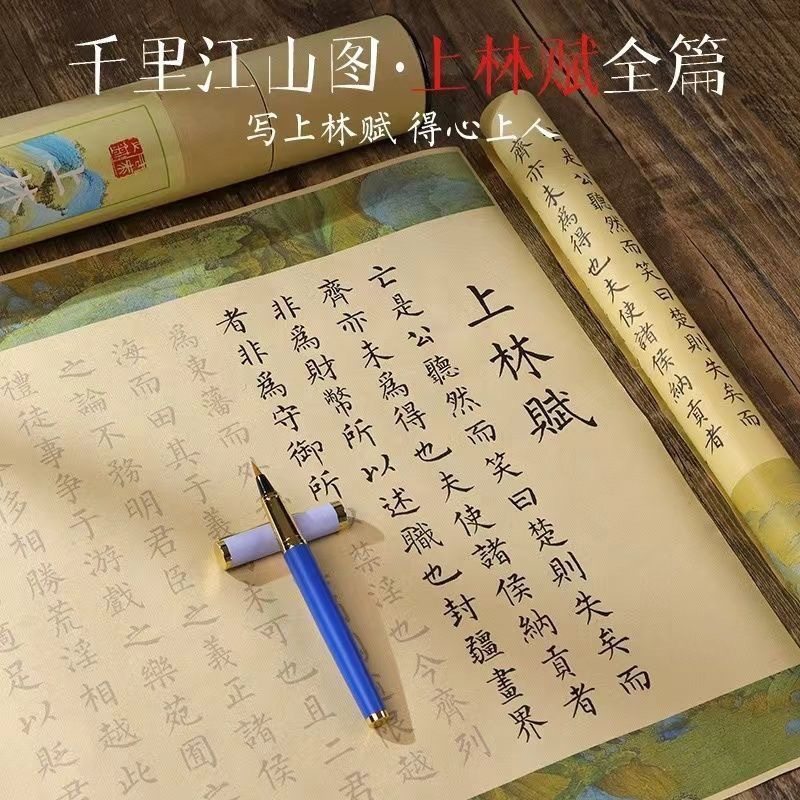 千里江山图·上林赋全篇
写上林赋 得心上人
上林賦
亡是公聽然而笑曰楚則失矣而
齊亦未爲得也夫使諸侯納貢者
非爲財幣所以述職也封疆畫界
者非爲守御所禁淫也今齊列
爲東藩而外限越
海而田其于義未可也且二君
之論不務明君臣之義正諸侯
禮徒事爭于游戲之樂苑囿
侈相勝荒淫相越此
適足以貶君
亡是公聽然而笑曰楚則失矣而
齊亦未爲得也夫使諸侯納貢者